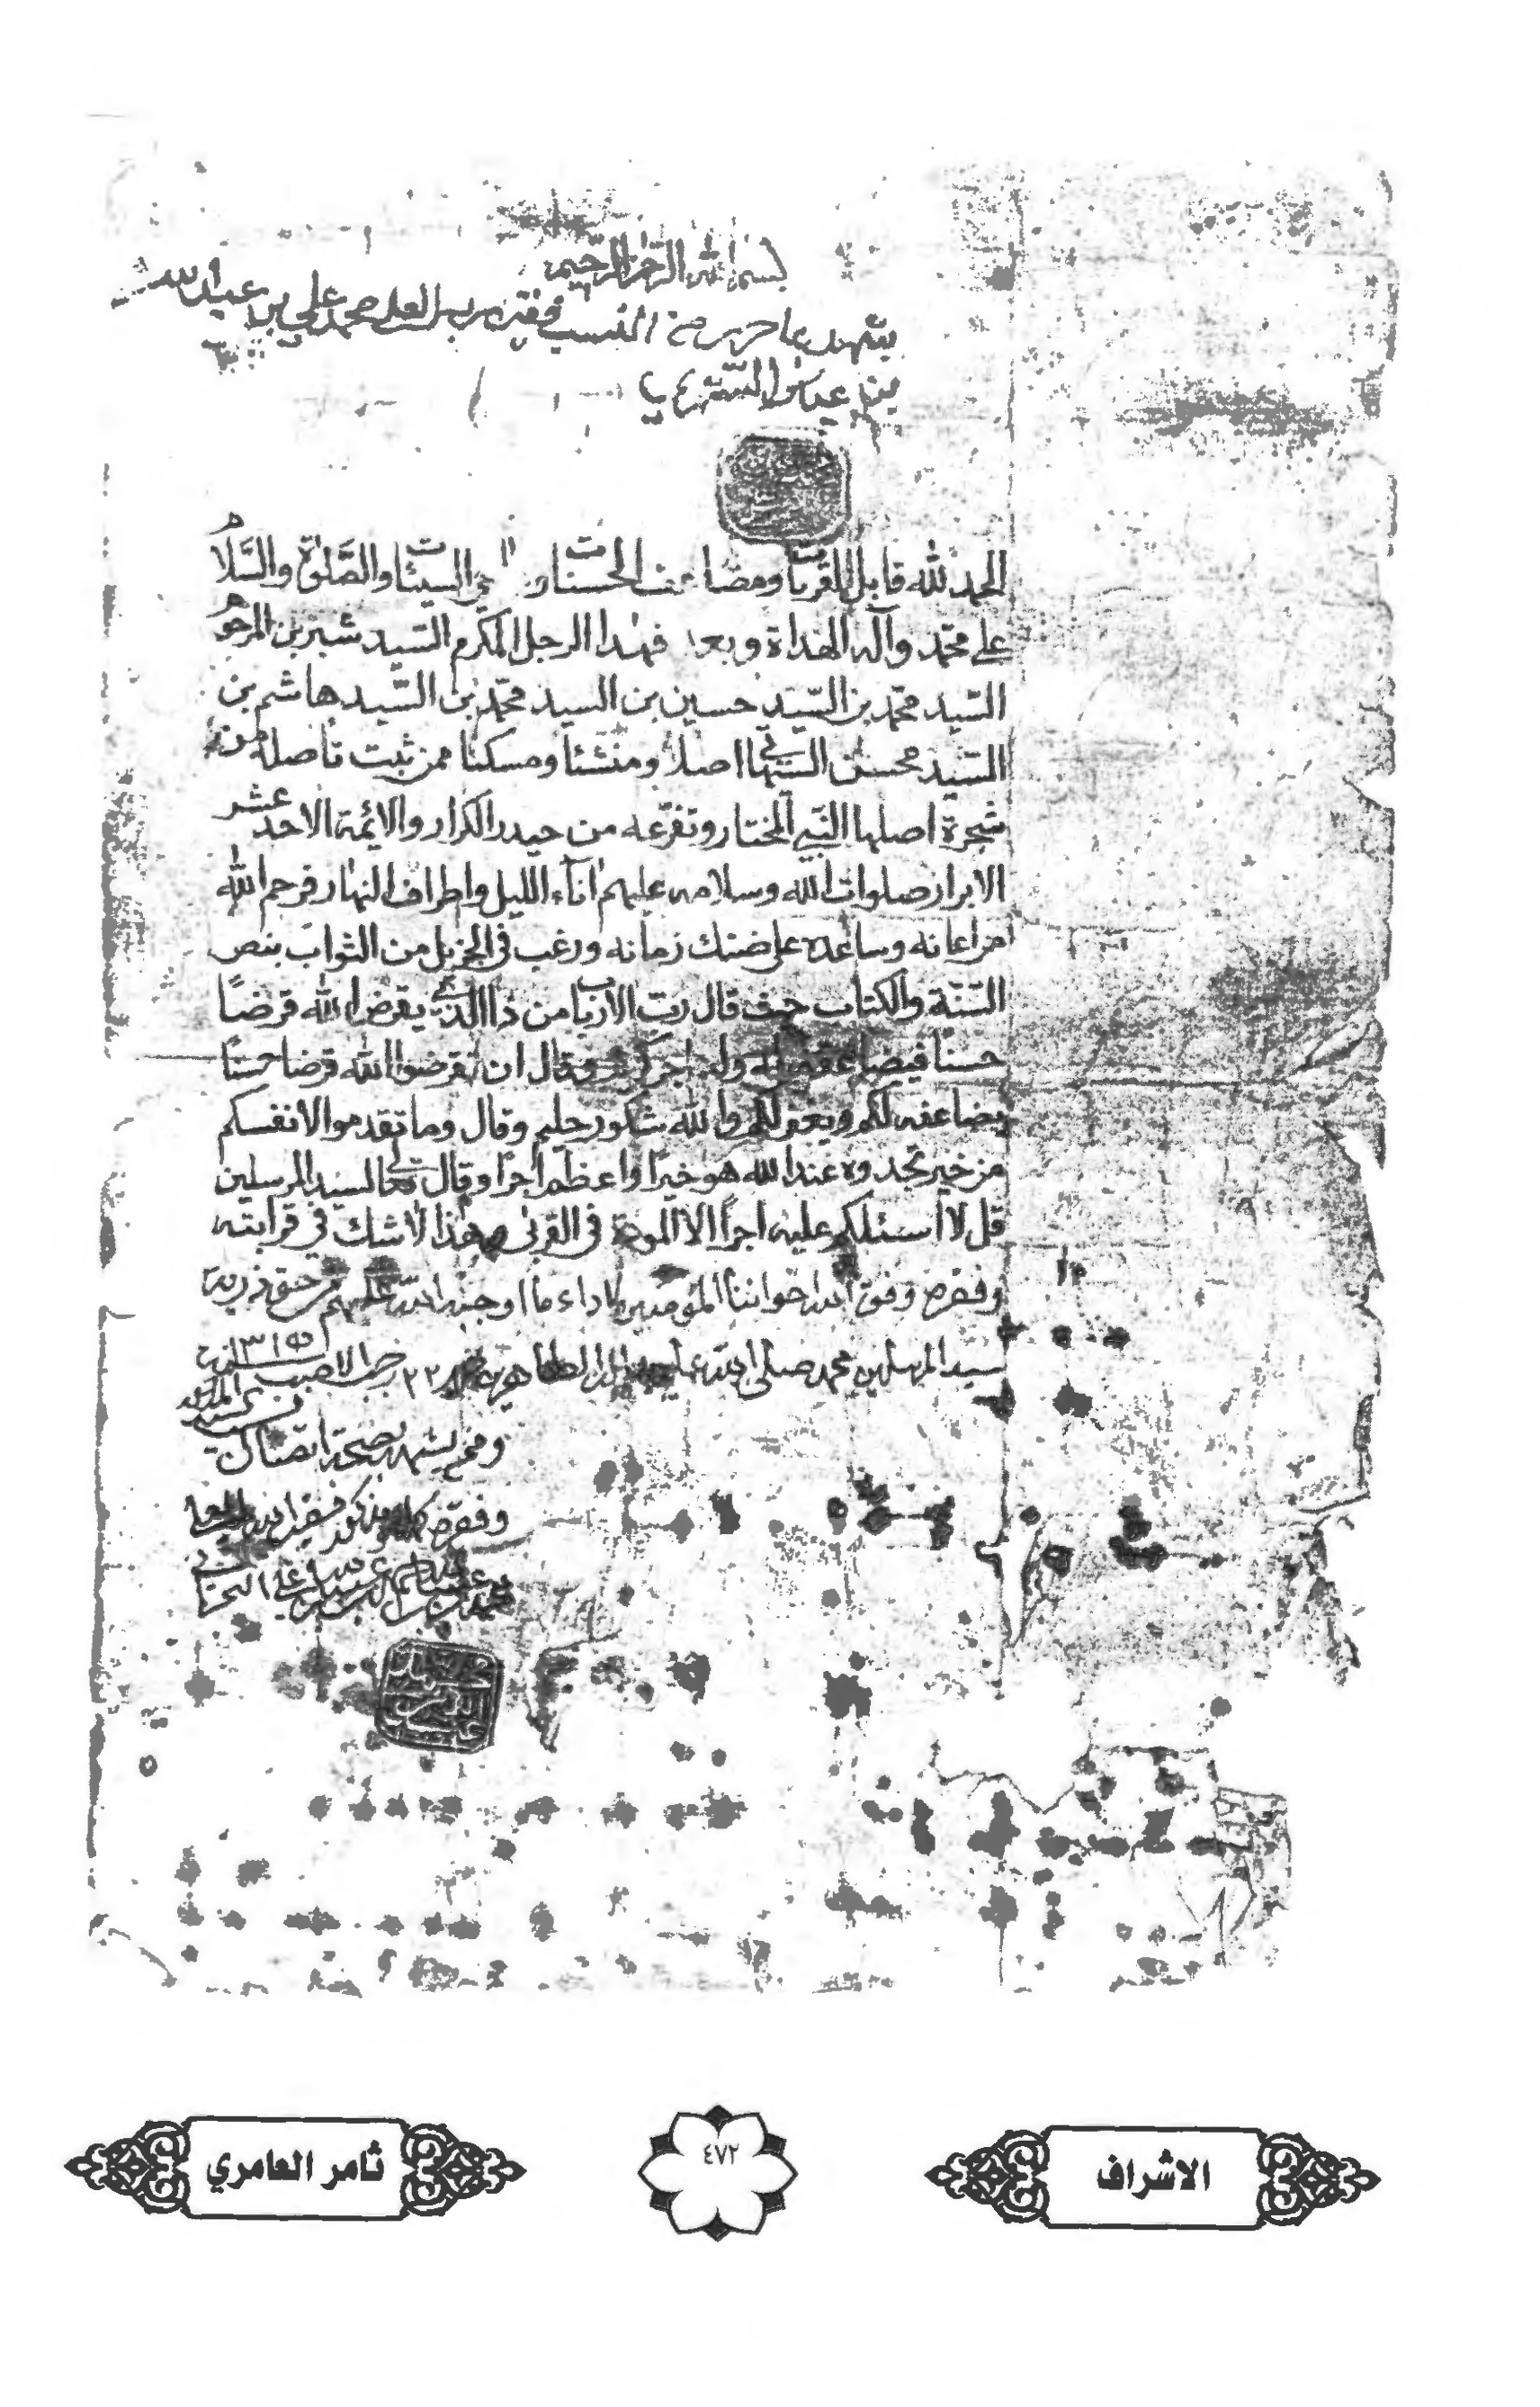 بسم الله الرحمن الرحيم
يشهد بما حرر من النسب فقير رب العلى محمد علي بن عبد الله
بن عباس الستري
الحمد لله قابل القربات ومضاعف الحسنات السيئات والصلوٰة والسلام
على محمد وآله الهداة وبعد فهذا الرجل المكرم السيد شبر بن المرحوم
السيد محمد بن السيد حسين بن السيد محمد بن السيد هاشم بن
السيد محسن اصلاً ومنشئاً ومسكناً ممن ثبت تأصله من
شجرة اصلها النبي المختار وتفرعه من حيدر الكرار والائمة الاحد عشر
الابرار صلوات الله وسلامه عليهم اناء الليل واطراف النهار فرحم الله
من اعانه وساعده على ضنك زمانه ورغب في الجزيل من الثواب بنص
السنة والكتاب حيث قال رب الارباب من ذا الذي يقرض الله قرضاً
حسناً فيضاعفه له وله اجر كريم وقال ان تقرضوا الله قرضا حسناً
يضاعفه لكم ويغفر لكم والله شكور حليم وقال وما تقدموا لانفسكم
من خير تجدوه عند الله هو خيراً واعظم اجراً وقال تعالى لسيد المرسلين
قل لا أسئلكم عليه اجراً الا المودة في القربى وهذا لا شك في قرابته
وفقره وفق الله اخواننا المؤمنين لاداء ما اوجبه الله عليهم من حق ذرية
سيد المرسلين محمد صلى الله عليه الطاهرين ٢٢ رجب الاصب سنة ١٣١٥
وممن يشهد بصحة اتصال
وفقره
البحراني
الاشراف
٤٧٢
ثامر العامري